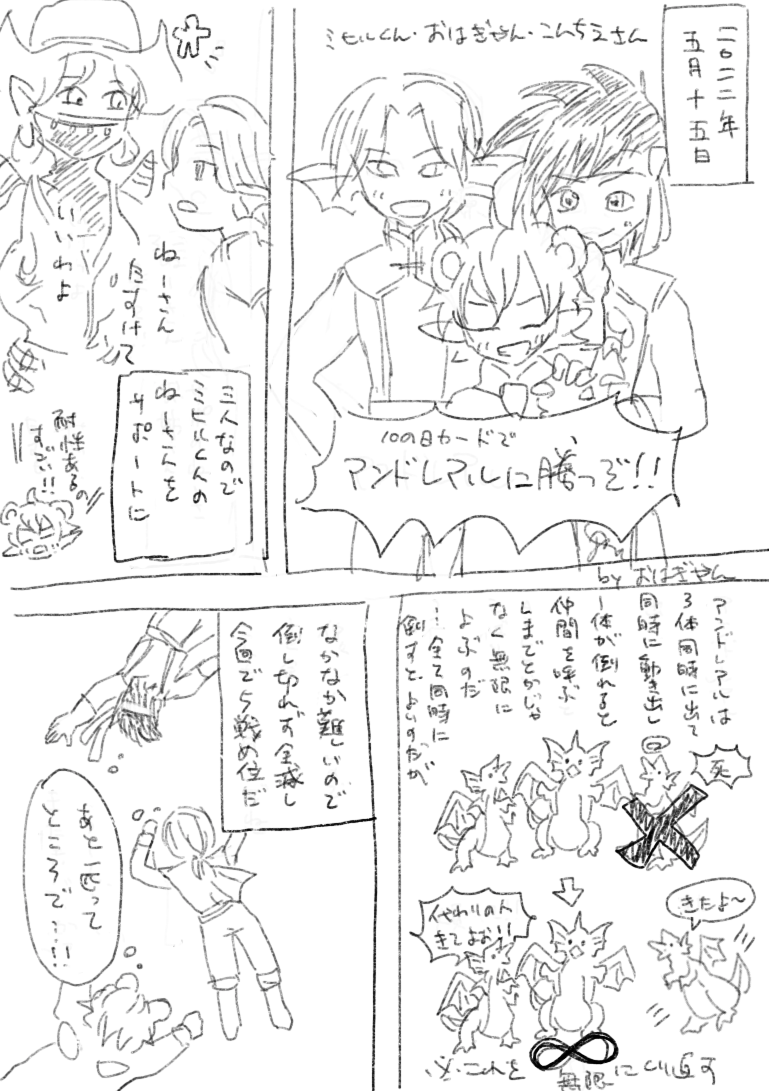 二〇二二年
五月十五日
ミヒルくん・おはぎやん・こんちえさん
10の日カードで
アンドレアルに勝つぞ!!
by おはぎやん
ねーさん
たすけて
いいわよ
三人なので
ミヒルくんの
ねーさんを
サポートに
耐性あるの
すごい!!
アンドレアルは
3体同時に出て
同時に動き出し
一体が倒れると
仲間を呼ぶ
しまでとかじゃ
なく無限に
よぶのだ
…全て同時に
倒すとよいのだが
死
代わりの人
きてよお!!
きたよ〜
これを
無限にくり返す
なかなか難しいので
倒し切れず全滅し
今回で5戦め位だ
あと一匹って
ところで…!!